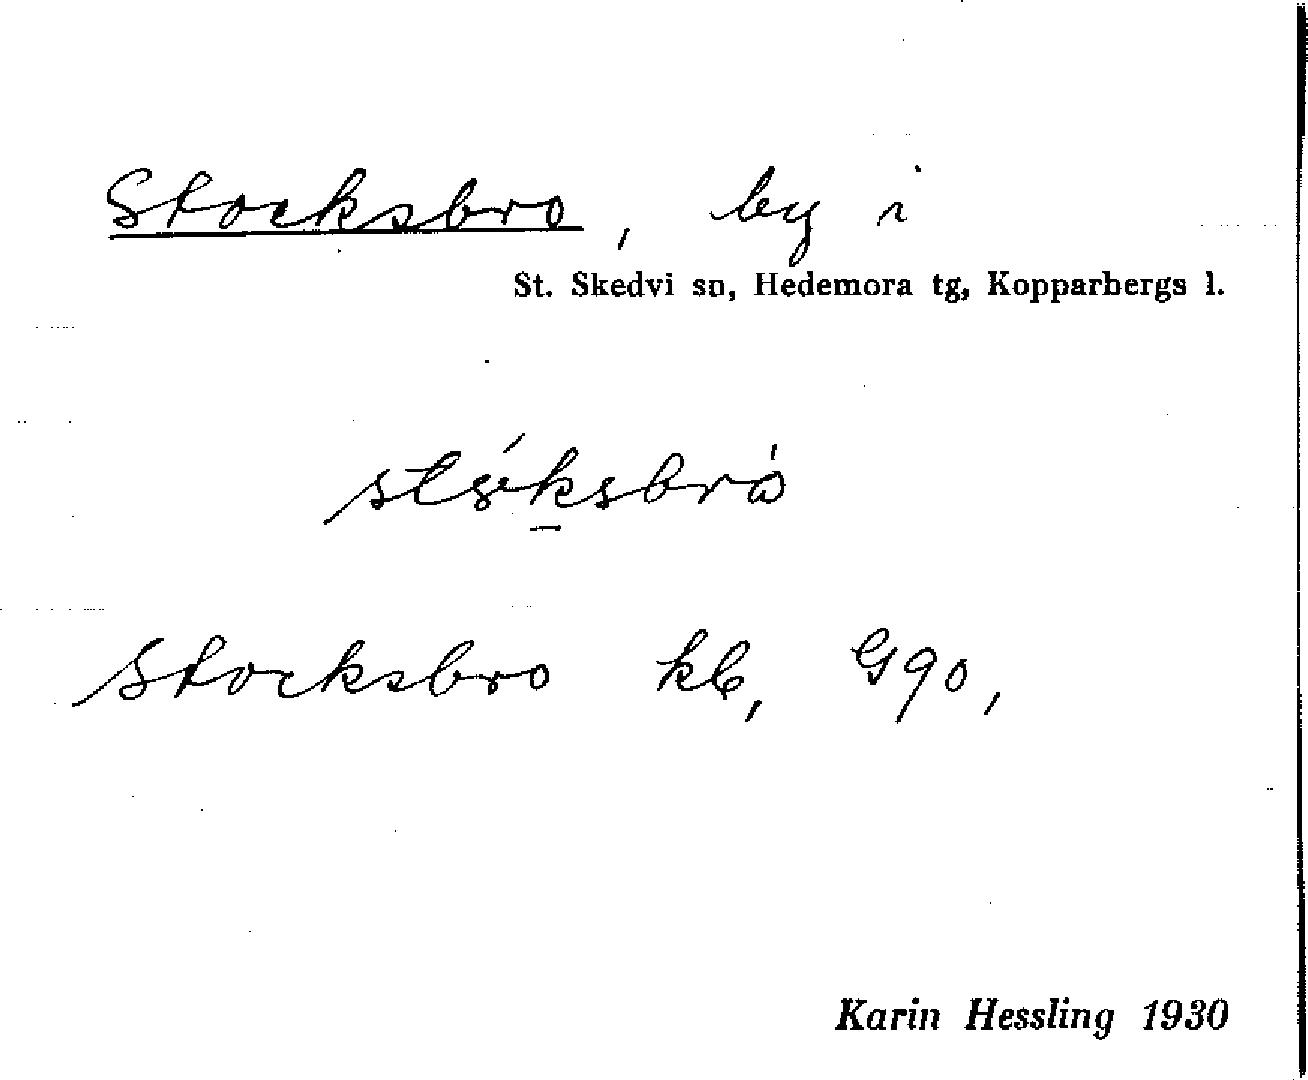 Stocksbro, by i
St. Skedvi sn, Hedemora tg, Kopparbergs l.
Stocksbro kb, G90,
Karin Hessling 1930